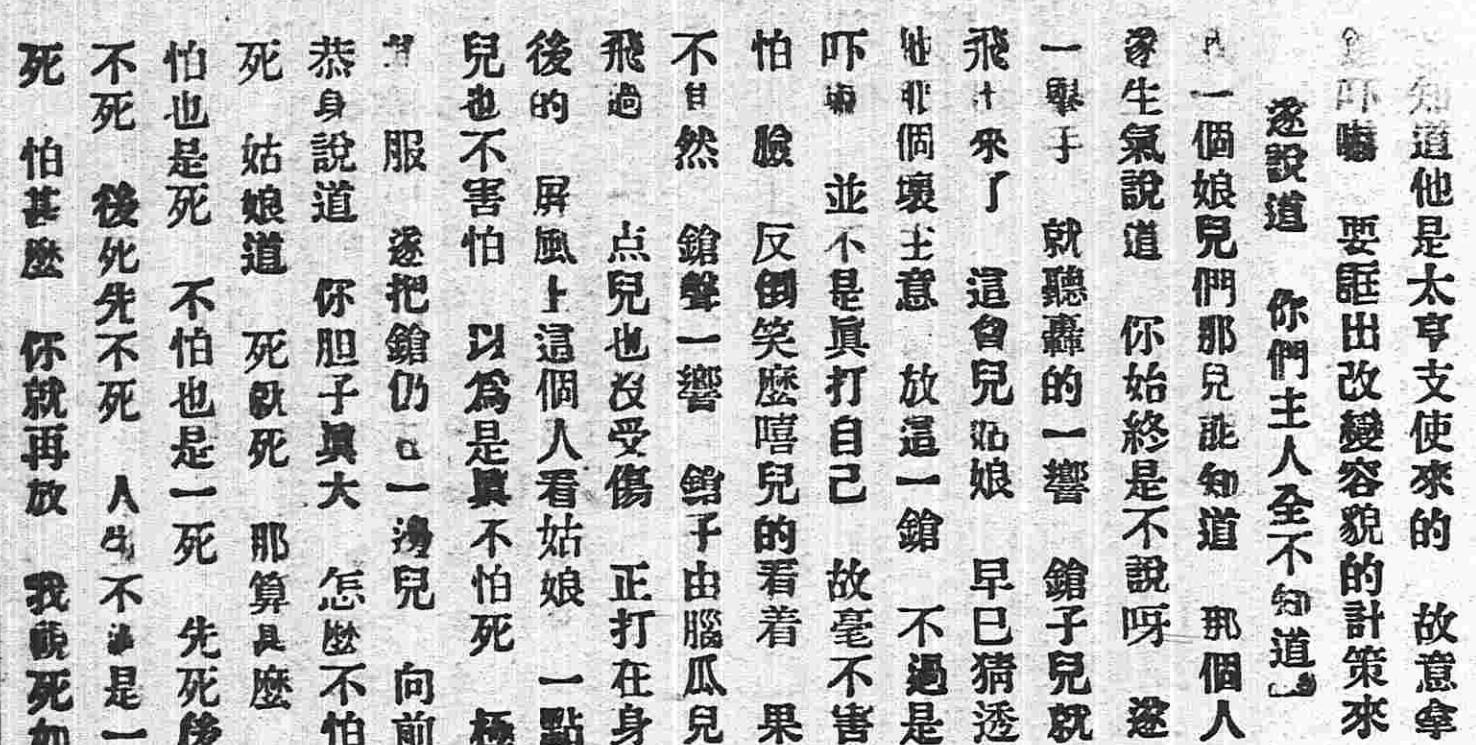 知道他是太亨支使來的 故意拿
吓嚇 要誆出改變容貌的計策來
遂說道 你們主人全不知道」
一個娘兒們那兒能知道 那個人
遂生氣說道 你始終是不說呀 遂
一舉手 就聽轟的一響 鎗子兒就
飛 來了 這會兒姑娘 早巳猜透
他 個壞主意 放這一鎗 不過是
吓 並不是眞打自己 故毫不害
怕 臉 反倒笑麼嘻兒的看着 果
不 然 鎗聲一響 鎗子由腦瓜兒
飛過 点兒也沒受傷 正打在身
後的 屏風上這個人看姑娘 一點
兒也不害怕 以為是眞不怕死 極
服 遂把鎗仍 一邊兒 向前
恭身說道 你胆子眞大 怎麽不怕
死 姑娘道 死就死 那算 麼
怕也是死 不怕也是一死 先死後
不死 後死先不死 人生不 是一
死 怕甚麽 你就再放 我 死如